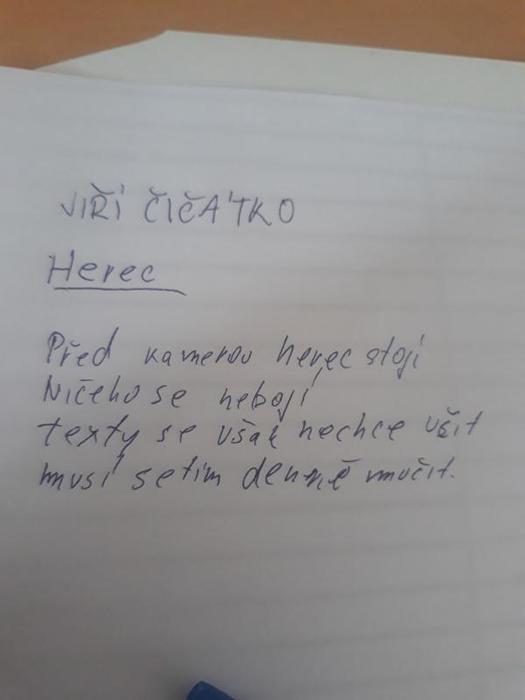 JIŘÍ ČIČÁTKO
Herec
Před kamerou herec stojí
Ničeho se nebojí
texty se však nechce učit
musí setim denně mučit.